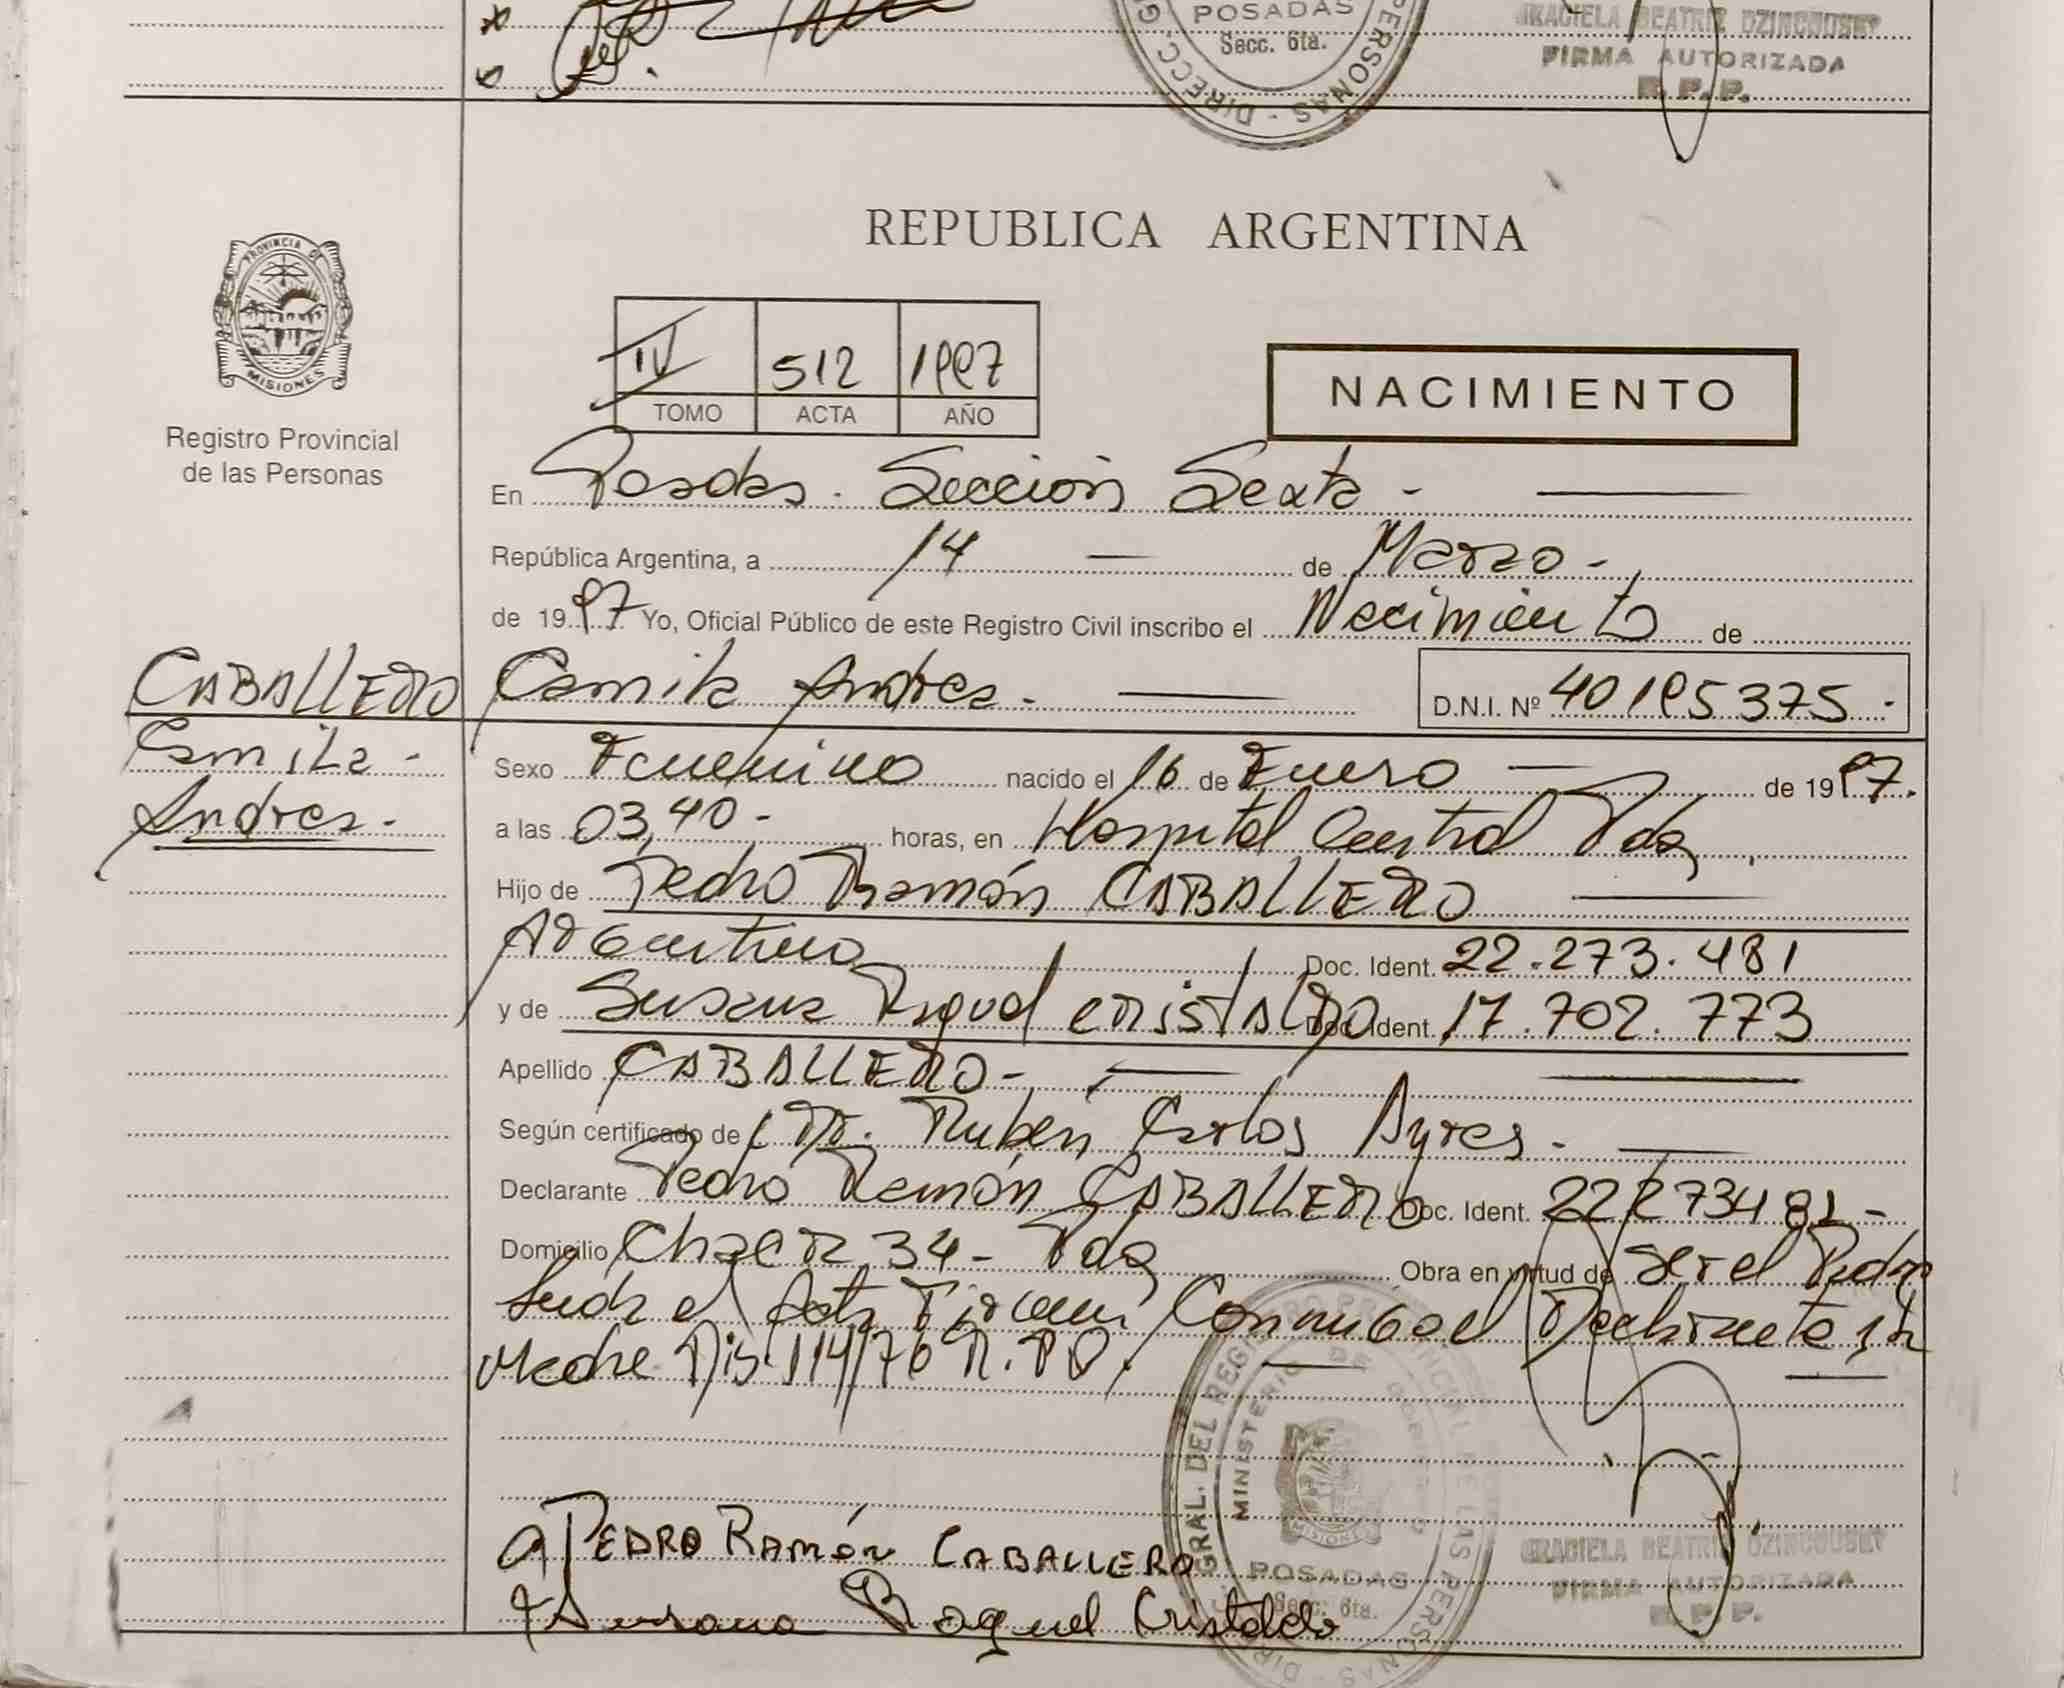 POSADAS
Secc. 6ta.
DIRECC
PERSONAS
GRACIELA BEATRIZ DZINCOUSKY
FIRMA AUTORIZADA
R. P. P.
PROVINCIA DE
MISIONES
Registro Provincial
de las Personas
REPUBLICA ARGENTINA
IV 512 1997
TOMO ACTA AÑO
NACIMIENTO
En Posadas. Sección Sexta -
República Argentina, a 14 de Marzo -
de 1997 Yo, Oficial Público de este Registro Civil inscribo el Nacimiento de
CABALLERO Camila Andrea. D.N.I. Nº 40195375.
Camila -
Andrea.
Sexo Femenino nacido el 16 de Enero de 1997.
a las 03,40 - horas, en Hospital Central Pdas
Hijo de Pedro Ramón CABALLERO
Argentino Doc. Ident. 22.273.481
y de Susana Raquel CRISTALDO Doc. Ident. 17.702.773
Apellido CABALLERO -
Según certificado de Dr. Rubén Carlos Ayres.
Declarante Pedro Ramón CABALLERO Doc. Ident. 22273481 -
Domicilio Chacra 34 - Pdas Obra en virtud de Ser el Padre
Leida el Acta Firman Conmigo el Declarante y la
Madre Dis. 114/76 R.P.P.
GRAL. DEL REGISTRO PROVINCIAL DE LAS PERSONAS
MINISTERIO DE GOBIERNO
MISIONES
POSADAS
Secc. 6ta.
GRACIELA BEATRIZ DZINCOUSKY
FIRMA AUTORIZADA
R. P. P.
PEDRO RAMÓN CABALLERO
Susana Raquel Cristaldo